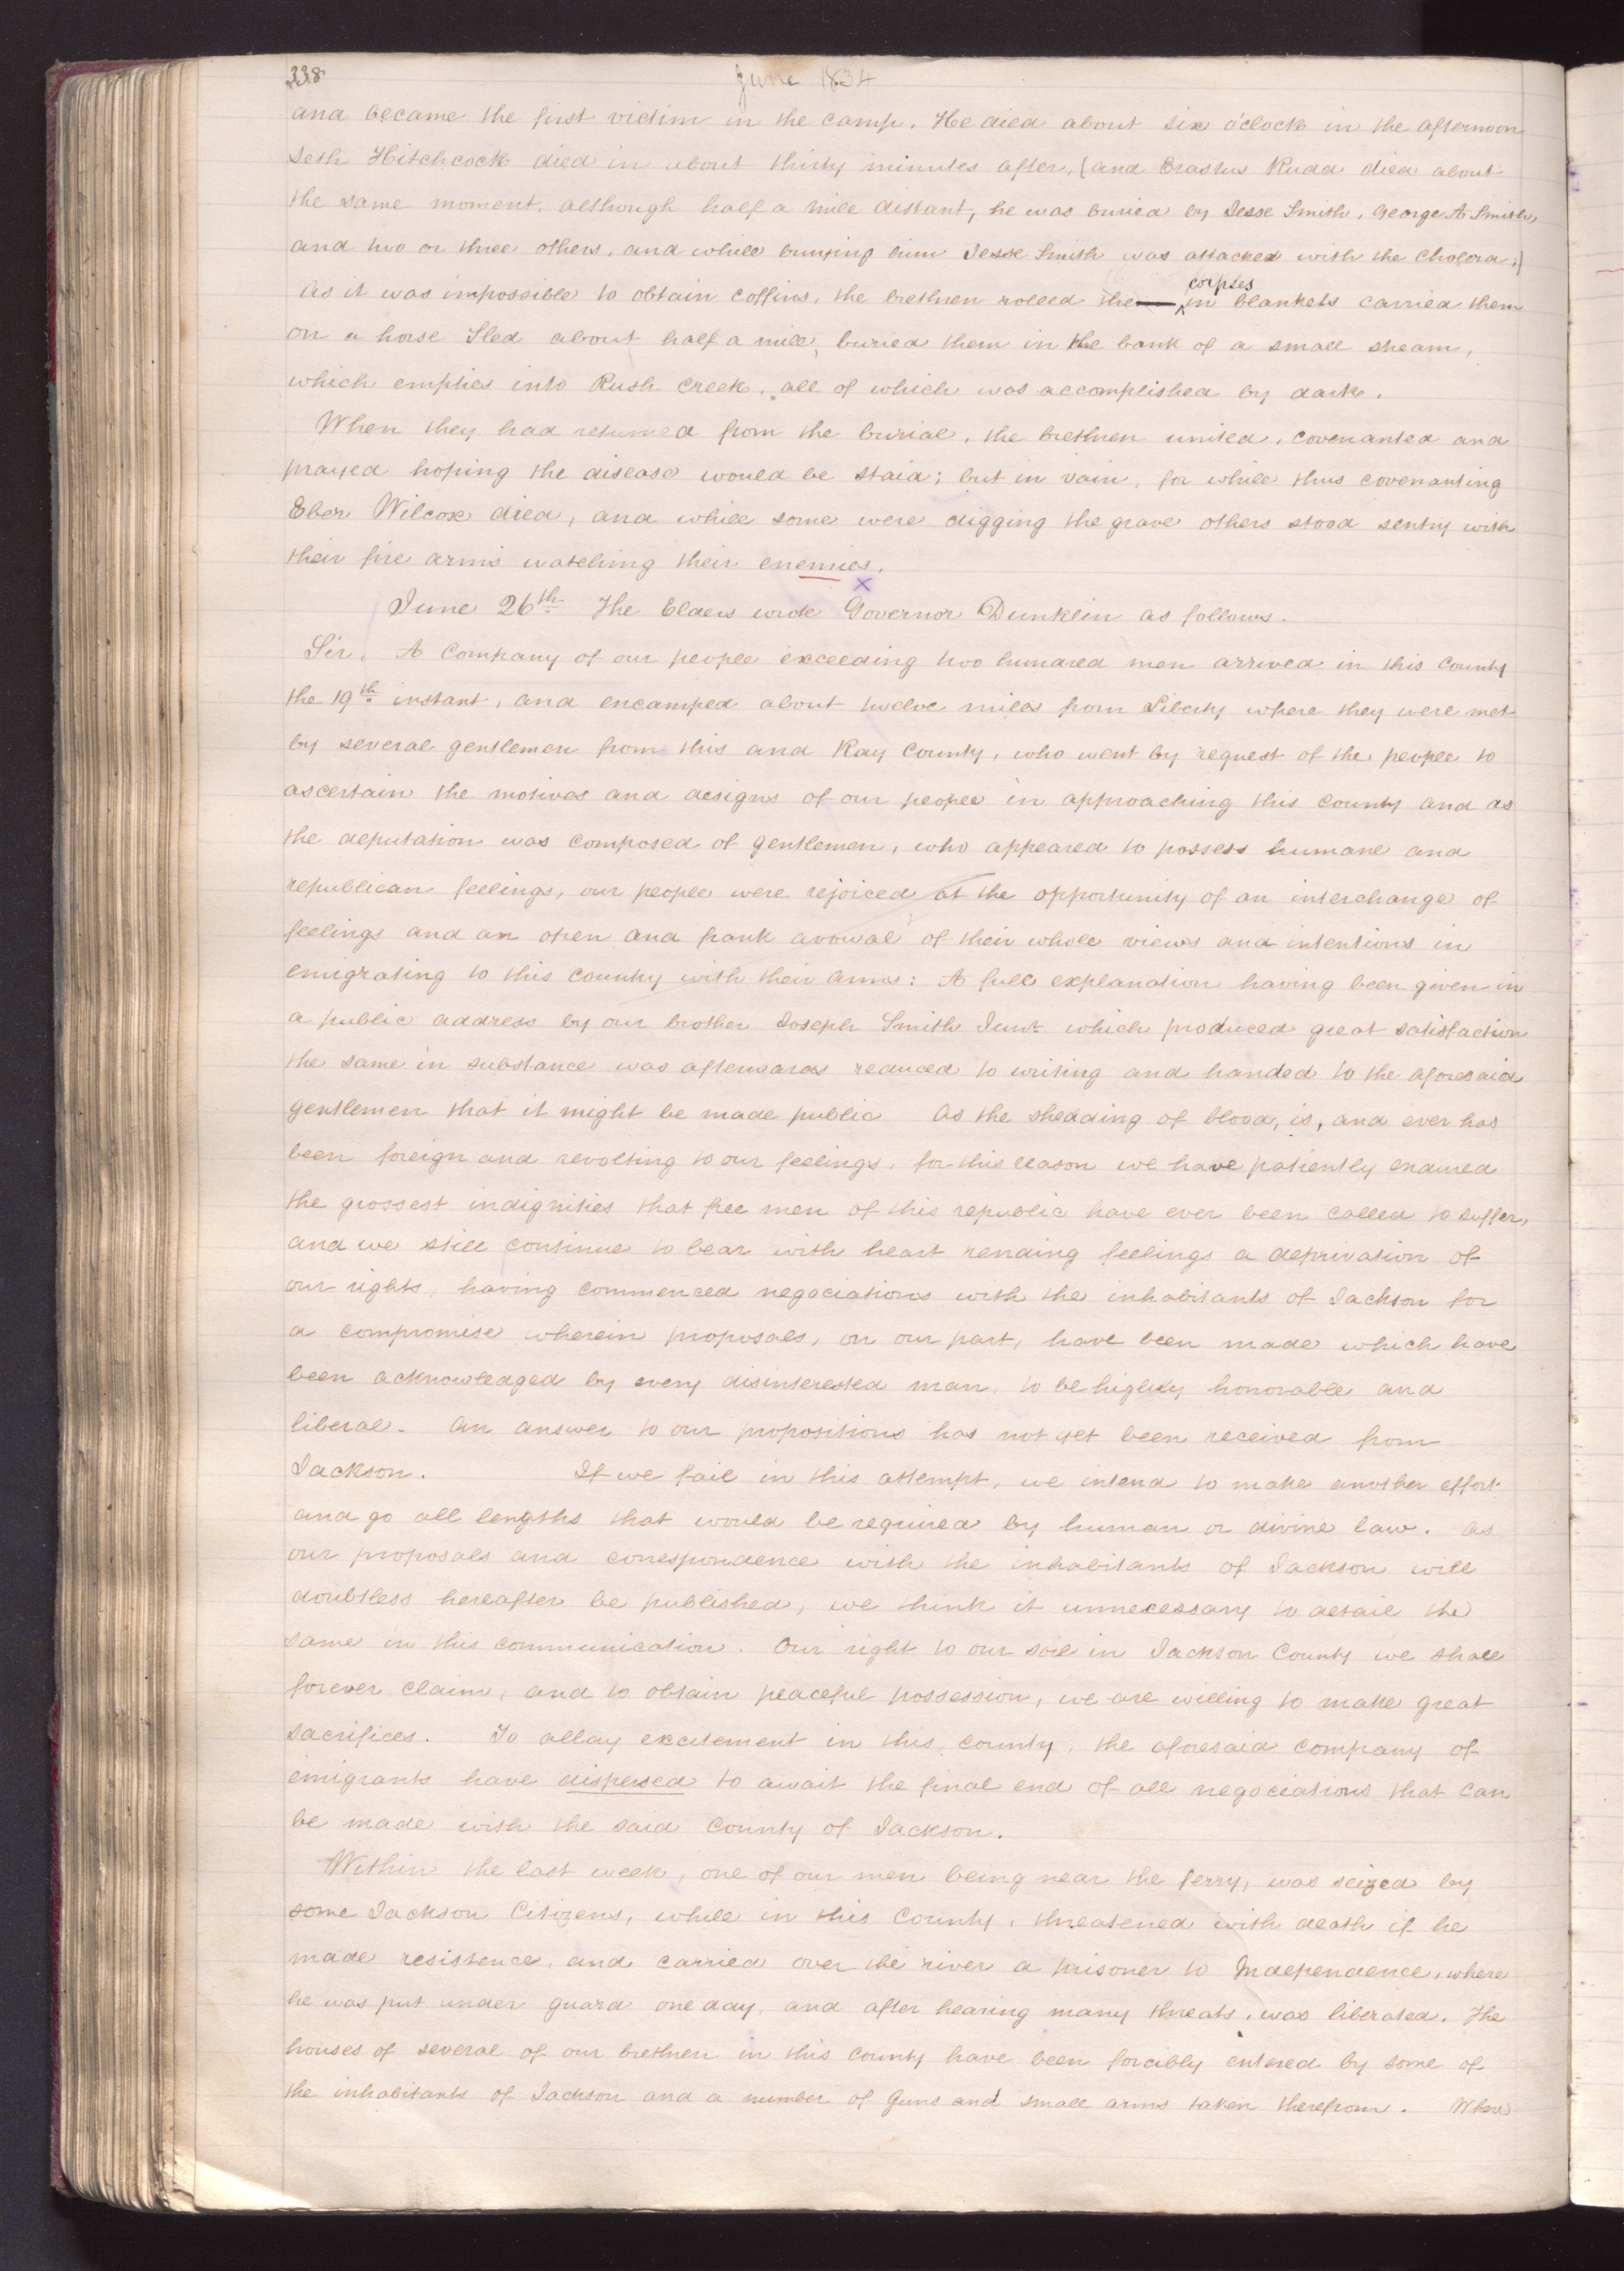 338
June 1834
and became the first victim in the camp. He died about six o'clock in the afternoon
Seth Hitchcock died in about thirty minutes after, [and Erastus Rudd died about
the same moment, although half a mile distant, he was buried by Jesse Smith, George A Smith,
and two or three others, and while burying him Jesse Smith was attacked with the Cholera;]
corpses
As it was impossible to obtain coffins, the brethren rolled the in blankets carried them
on a horse Sled about half a mile, buried them in the bank of a small stream,
which empties into Rush creek, all of which was accomplished by dark.
When they had returned from the burial, the brethren united, covenanted and
prayed hoping the disease would be staid; but in vain, for while thus covenanting
Eber Wilcox died, and while some were digging the grave others stood sentry with
their fire arms watching their enemies.
June 26th. The Elders wrote Governor Dunklin as follows.
Sir, A Company of our people exceeding two hundred men arrived in this County
the 19th instant, and encamped about twelve miles from Liberty where they were met
by several gentlemen from this and Ray County, who went by request of the people to
ascertain the motives and designs of our people in approaching this county and as
the deputation was composed of gentlemen, who appeared to possess humane and
republican feelings, our people were rejoiced at the opportunity of an interchange of
feelings and an open and frank avowal of their whole views and intentions in
emigrating to this country with their arms: A full explanation having been given in
a public address by our brother Joseph Smith Junr. which produced great satisfaction
the same in substance was afterwards reduced to writing and handed to the aforesaid
gentlemen that it might be made public As the shedding of blood, is, and ever has
been foreign and revolting to our feelings, for this reason we have patiently endured
the grossest indignities that free men of this republic have ever been called to suffer,
and we still continue to bear with heart rending feelings a deprivation of
our rights, having commenced negociations with the inhabitants of Jackson for
a compromise wherein proposals, on our part, have been made which have
been acknowledged by every disinterested man, to be highly honorable and
liberal. An answer to our propositions has not yet been received from
Jackson. If we fail in this attempt, we intend to make another effort
and go all lengths that would be required by human or divine law. As
our proposals and correspondence with the inhabitants of Jackson will
doubtless hereafter be published, we think it unnecessary to detail the
same in this communication. Our right to our soil in Jackson County we shall
forever claim, and to obtain peaceful possession, we are willing to make great
sacrifices. To allay excitement in this county, the aforesaid company of
emigrants have dispersed to await the final end of all negociations that can
be made with the said County of Jackson.
Within the last week, one of our men being near the ferry, was seized by
some Jackson Citizens, while in this County, threatened with death if he
made resistence, and carried over the river a prisoner to Independence, where
he was put under guard one day, and after hearing many threats, was liberated. The
houses of several of our brethren in this County have been forcibly entered by some of
the inhabitants of Jackson and a number of Guns and small arms taken therefrom. Where